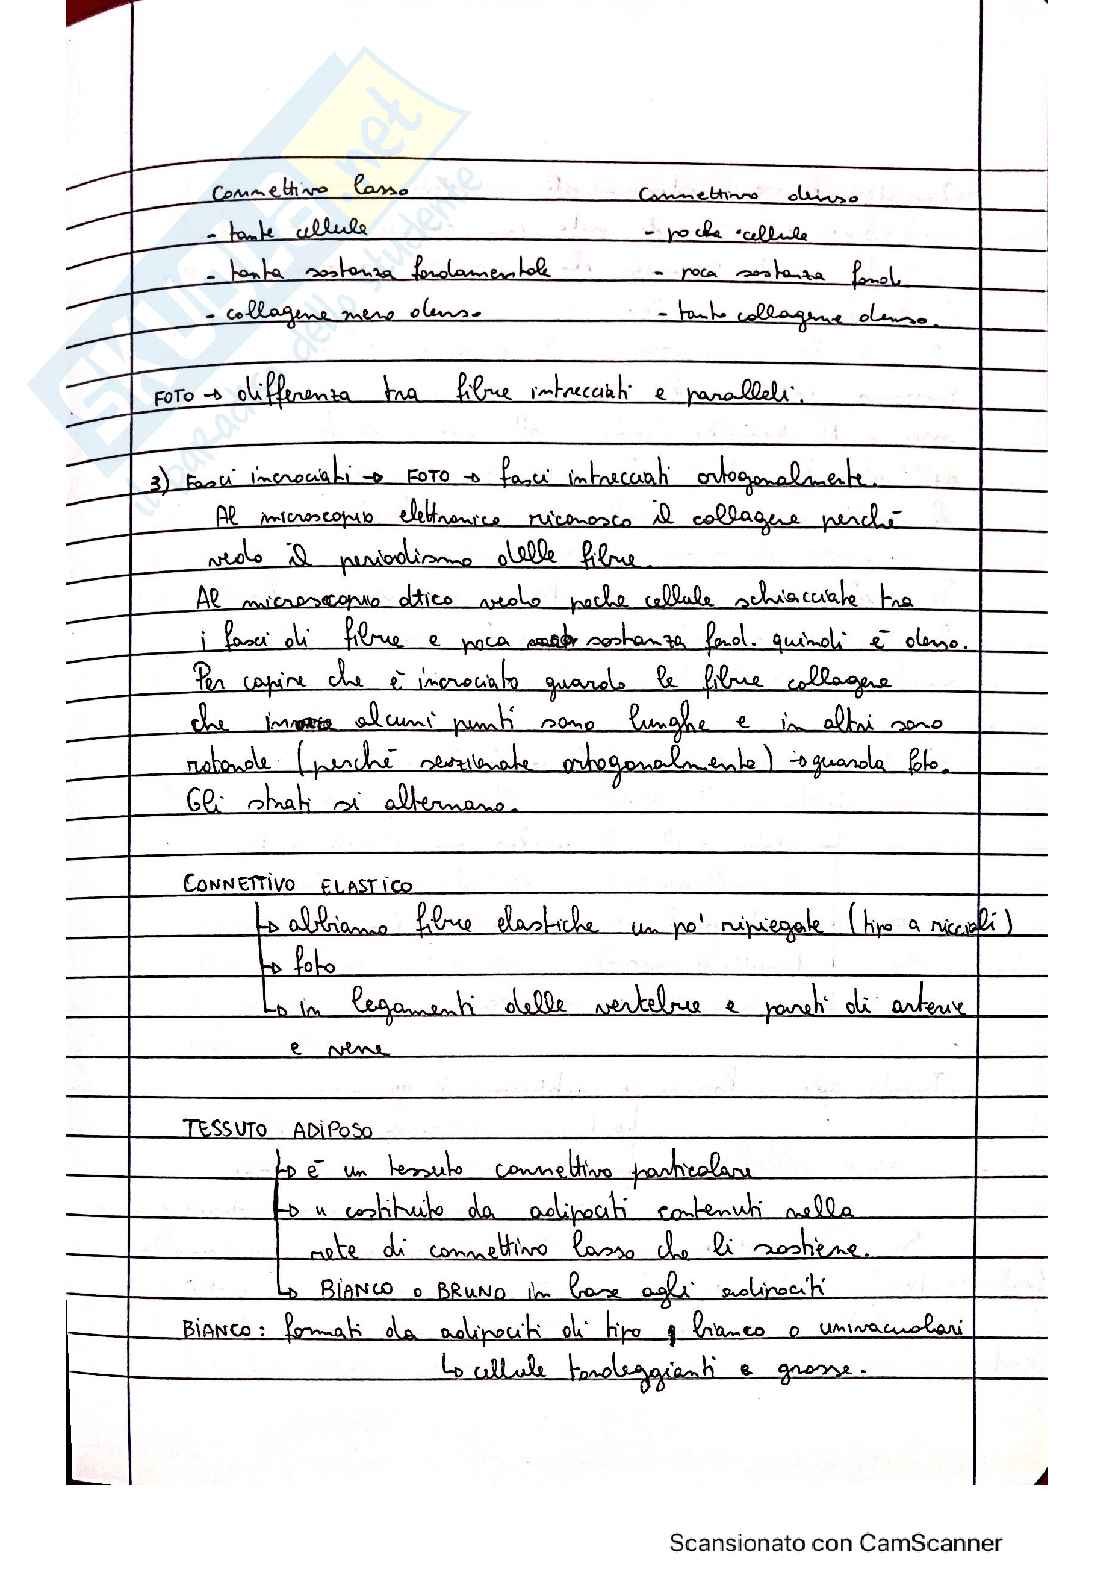 Connettivo lasso Connettivo denso
- tante cellule - poche cellule
- tanta sostanza fondamentale - poca sostanza fond.
- collagene meno denso - tanto collagene denso.
FOTO → differenza tra fibre intrecciati e paralleli.
3) Fasci incrociati → FOTO → fasci intrecciati ortogonalmente.
Al microscopio elettronico riconosco il collagene perché
vedo il periodismo delle fibre.
Al microscopio ottico vedo poche cellule schiacciate tra
i fasci di fibre e poca sostanza fond. quindi è denso.
Per capire che è incrociato guardo le fibre collagene
che in alcuni punti sono lunghe e in altri sono
rotonde (perché sezionate ortogonalmente) → guarda foto.
Gli strati si alternano.
CONNETTIVO ELASTICO
↳ abbiamo fibre elastiche un po' ripiegate (tipo a riccioli)
↳ foto
↳ in legamenti delle vertebre e pareti di arterie
e vene
TESSUTO ADIPOSO
↳ è un tessuto connettivo particolare
↳ costituito da adipociti contenuti nella
rete di connettivo lasso che li sostiene.
↳ BIANCO o BRUNO in base agli adipociti
BIANCO: formati da adipociti di tipo bianco o univacuolari
↳ cellule tondeggianti e grosse.
SKUOLA.net
il paradiso dello studente
Scansionato con CamScanner